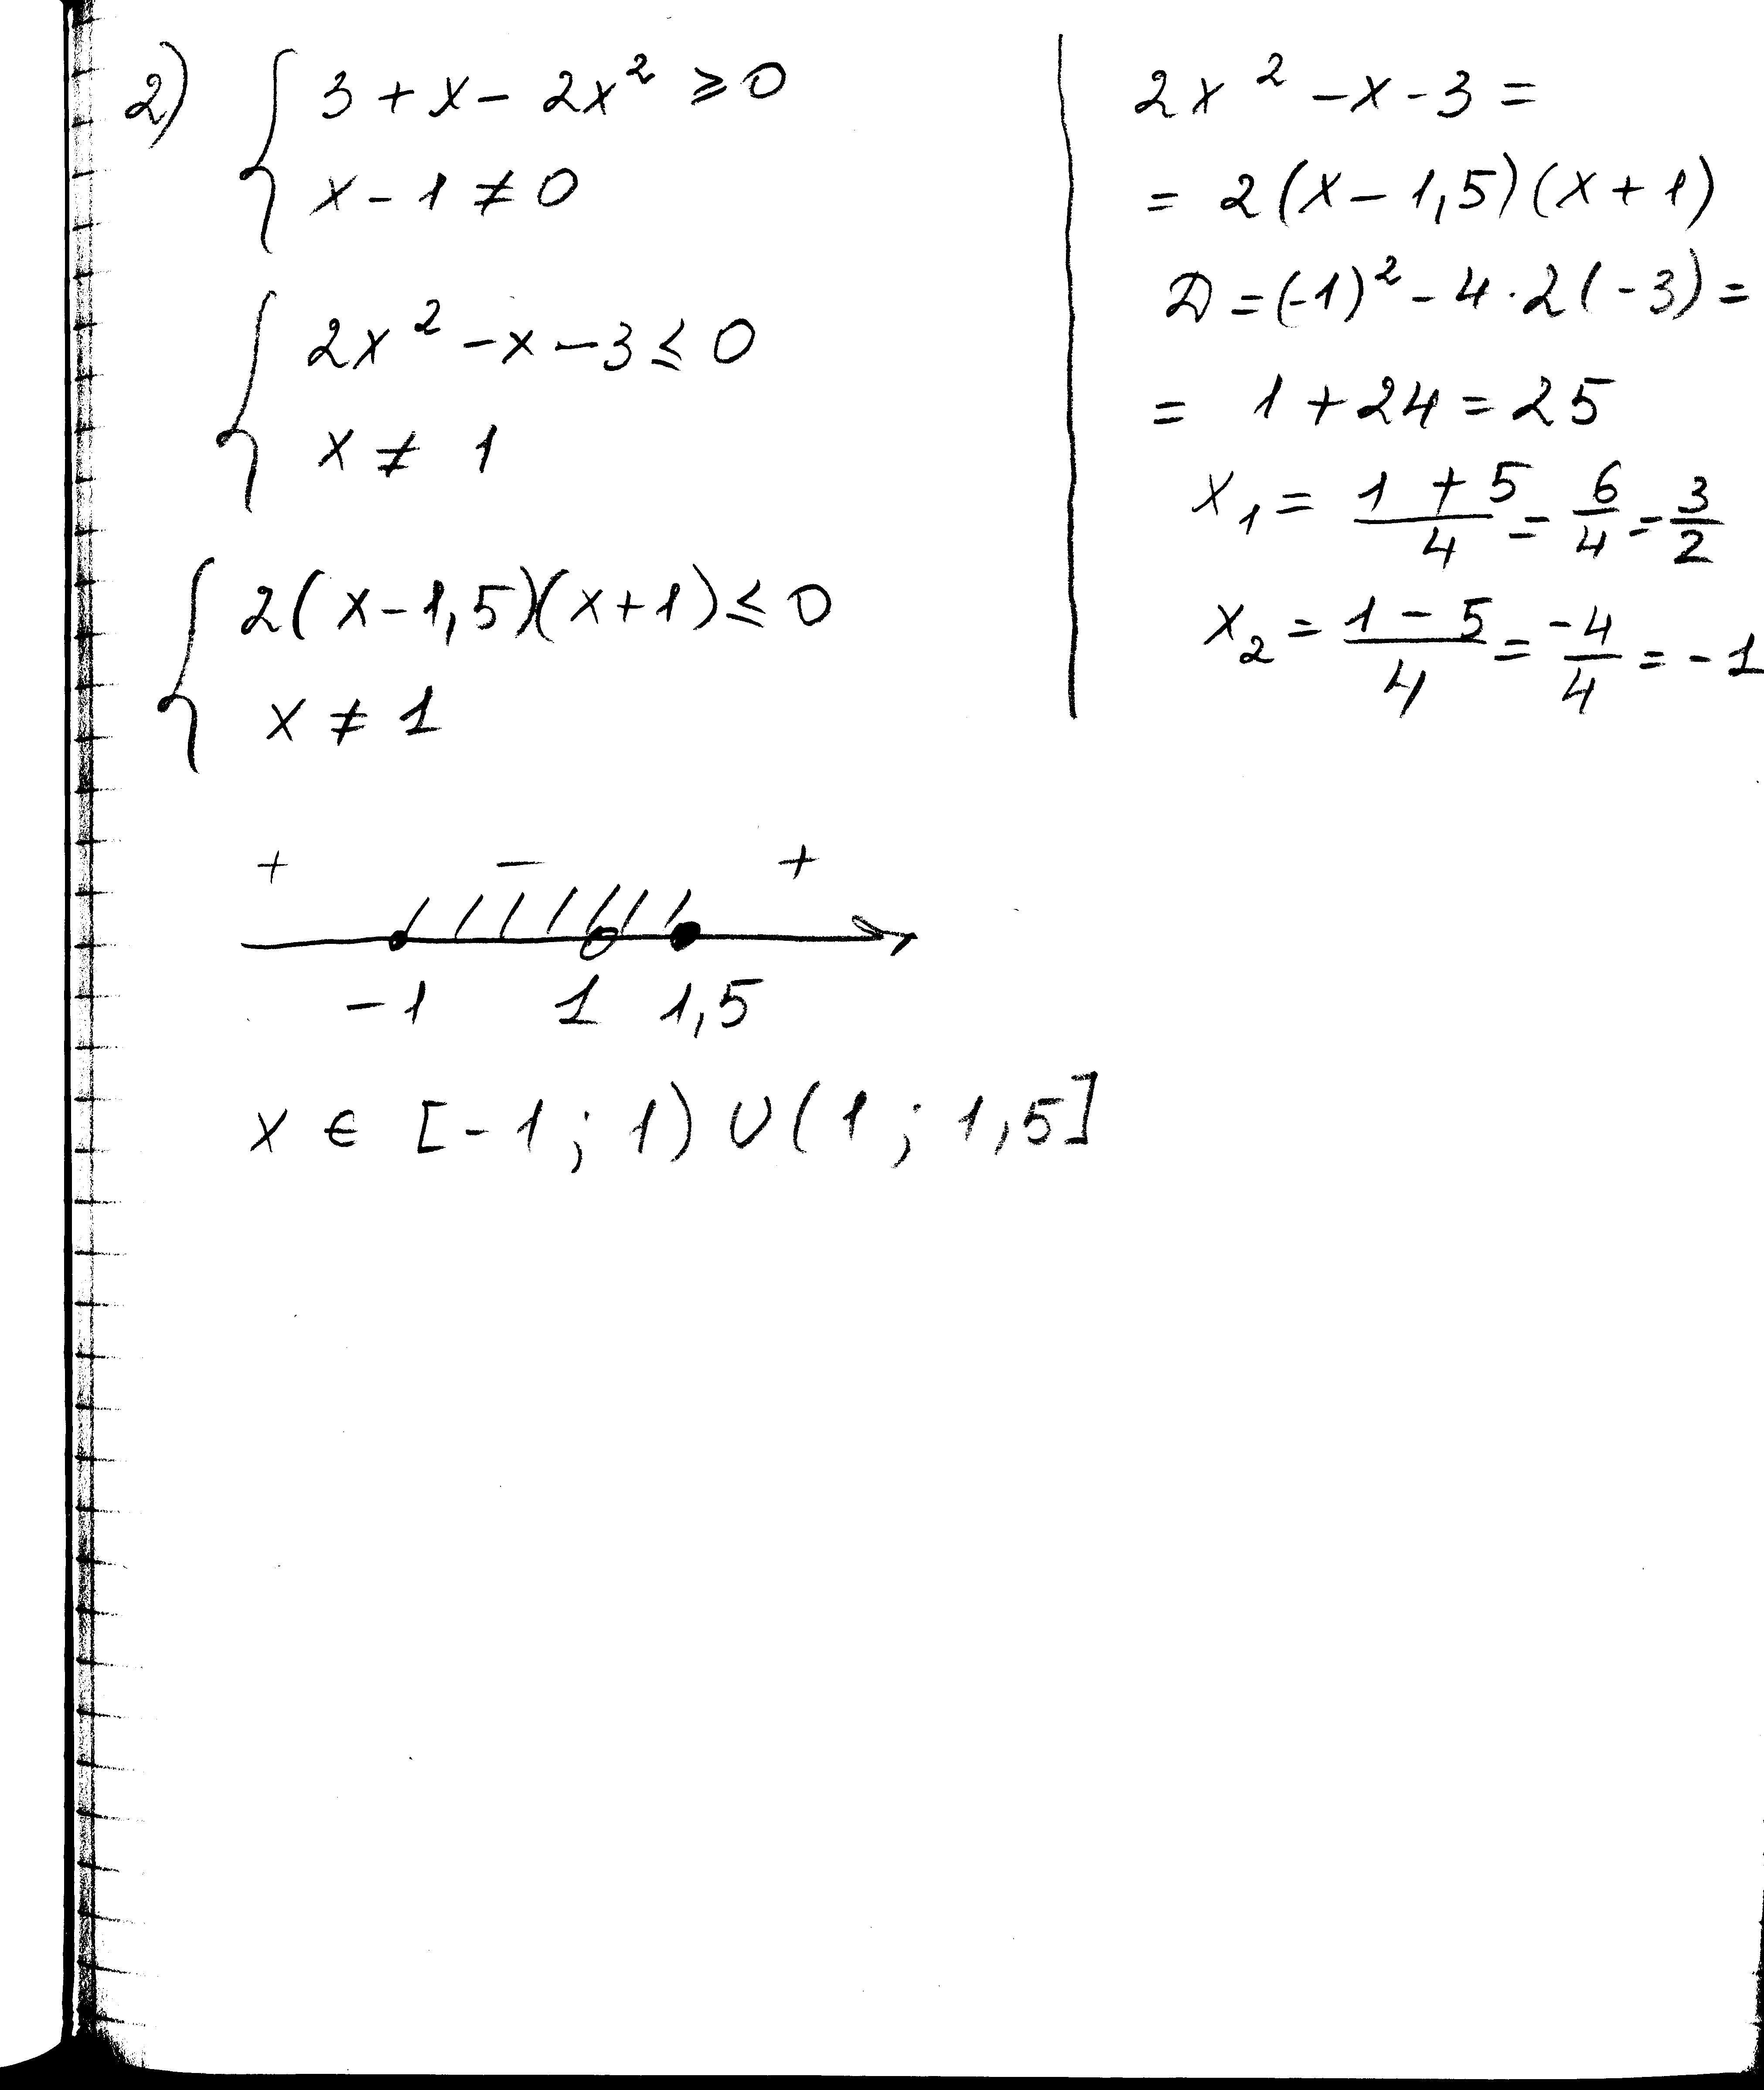 2) { 3 + x - 2x² ≥ 0
x - 1 ≠ 0
{ 2x² - x - 3 ≤ 0
x ≠ 1
{ 2(x - 1,5)(x + 1) ≤ 0
x ≠ 1
+ − +
-1 1 1,5
x ∈ [-1; 1) ∪ (1; 1,5]
2x² - x - 3 =
= 2(x - 1,5)(x + 1)
D = (-1)² - 4·2(-3) =
= 1 + 24 = 25
x₁ = (1 + 5)/4 = 6/4 = 3/2
x₂ = (1 - 5)/4 = -4/4 = -1